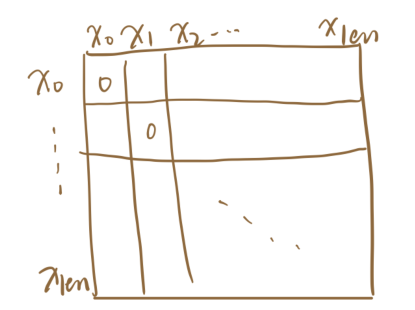 x₀ x₁ x₂ ... xlen
x₀ 0
0
xlen